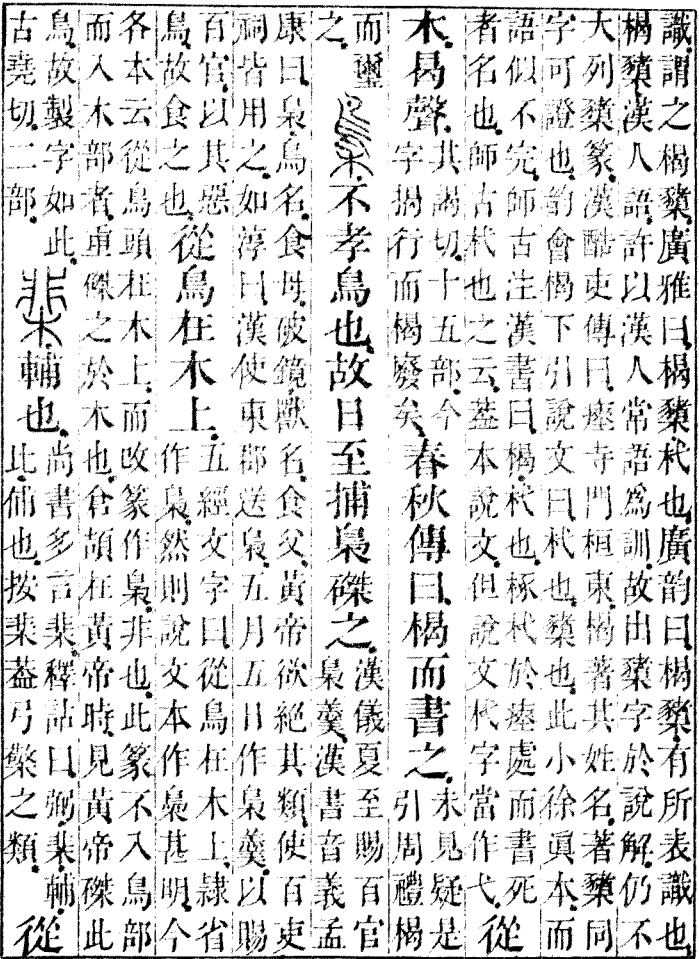 識。謂之楬櫫。廣雅曰。楬櫫。杙也。廣韵曰。楬櫫。有所表識也。
楬櫫漢人語。許以漢人常語爲訓。故出櫫字於說解。仍不
大列櫫篆。漢酷吏傳曰。瘞寺門桓東。楬著其姓名。著櫫同
字可證也。韵會楬下引說文曰。杙也。櫫也。此小徐眞本。而
語似不完。師古注漢書曰。楬。杙也。椓杙於瘞處而書死
者名也。師古杙也之云。葢本說文。但說文杙字當作弋。
從
木。曷聲。
其謁切。十五部。今
字揭行而楬廢矣。
春秋傳曰。楬而書之。
未見。疑是
引周禮楬
而璽
之。
梟 不孝鳥也。故日至捕梟磔之。
漢儀夏至賜百官
梟羹。漢書音義孟
康曰。梟。鳥名。食母。破鏡。獸名。食父。黃帝欲絕其類。使百吏
祠皆用之。如淳曰。漢使東郡送梟。五月五日作梟羹。以賜
百官。以其惡
鳥。故食之也。
從鳥在木上。
五經文字曰。從鳥在木上。隸省
作梟。然則說文本作梟甚明。今
各本云從鳥頭在木上。而改篆作梟。非也。此篆不入鳥部
而入木部者。重磔之於木也。倉頡在黃帝時。見黃帝磔此
鳥。故製字如此。
古堯切。二部。
棐 輔也。
尚書多言棐。釋詁曰。弼。棐。輔。
比。俌也。按棐葢弓檠之類。
從